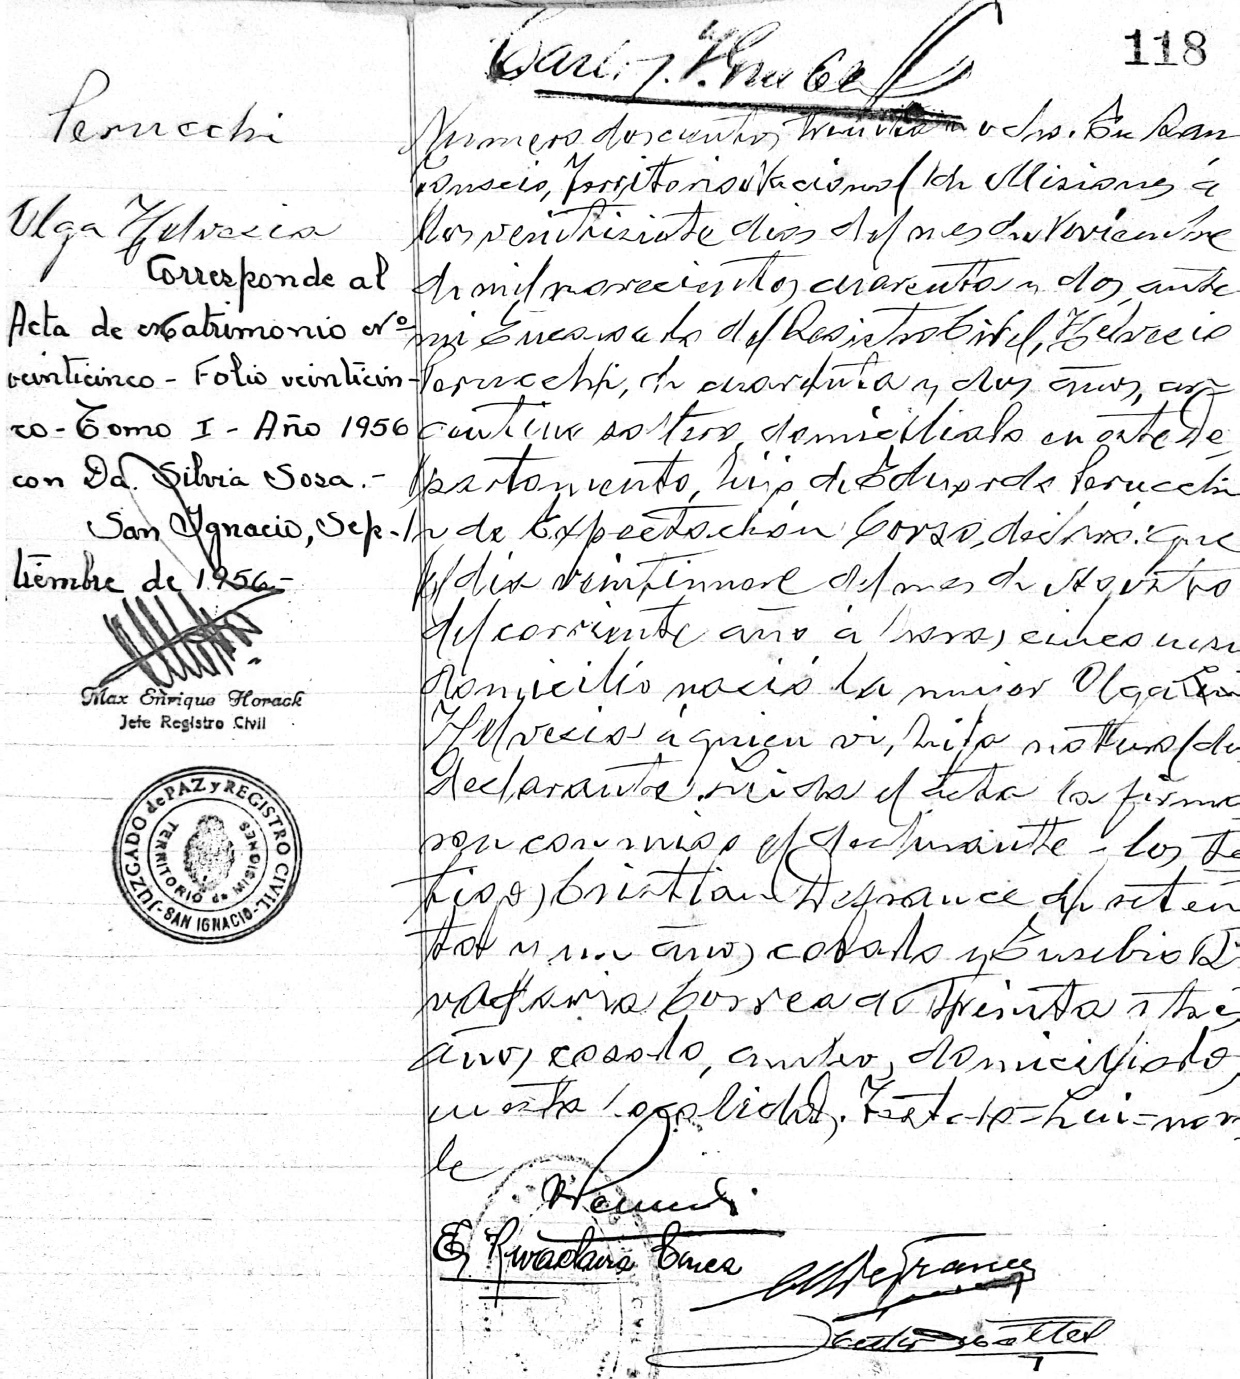 118
Perucchi
Olga Helvecia
Corresponde al
Acta de Matrimonio Nº
veinticinco - Folio veinticin-
co - Tomo I - Año 1956
con Da. Silvia Sosa.-
San Ignacio, Sep-
tiembre de 1956-
Max Enrique Horack
Jefe Registro Civil
JUZGADO de PAZ y REGISTRO CIVIL
-SAN IGNACIO-
TERRITORIO de MISIONES
Numero doscientos treinta y ocho. En San
Ignacio, Territorio Nacional de Misiones á
los veintisiete dias del mes de Noviembre
de mil novecientos cuarenta y dos, ante
mi Encargado del Registro Civil, Helvecio
Perucchi, de cuarenta y dos años, ar
gentino soltero, domiciliado en este De
partamento, hijo de Eduardo Perucchi
y de Expectación Corzo, declaró: que
el dia veintinueve del mes de Agosto
del corriente año á horas cinco en su
domicilio nació la mujer Olga
Helvecia á quien vi, hija natural del
declarante. Leida el acta la firma
ron conmigo el declarante y los te
tigos Cristian Defrance de seten
ta y un años, casado y Eusebio Ri
vadavia Correa de treinta y tres
años, casado, ambos domiciliados
en esta localidad. Testado = Lui = no va
le
E. Rivadavia Correa
Defrance